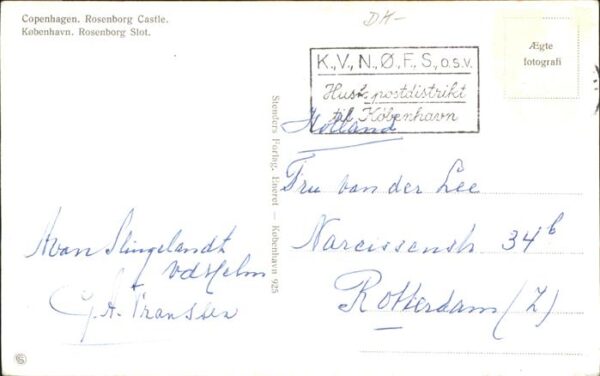 Copenhagen. Rosenborg Castle.
København. Rosenborg Slot.
DK-
K., V., N., Ø., F., S., o.s.v.
Husk postdistrikt
til København
Ægte
fotografi
Stenders Forlag. Eneret — København 925
Holland
Fru van der Lee
Narcissenstr 34 b
Rotterdam (Z)
A van Slingelandt
vd Helm
G. A. Franssen